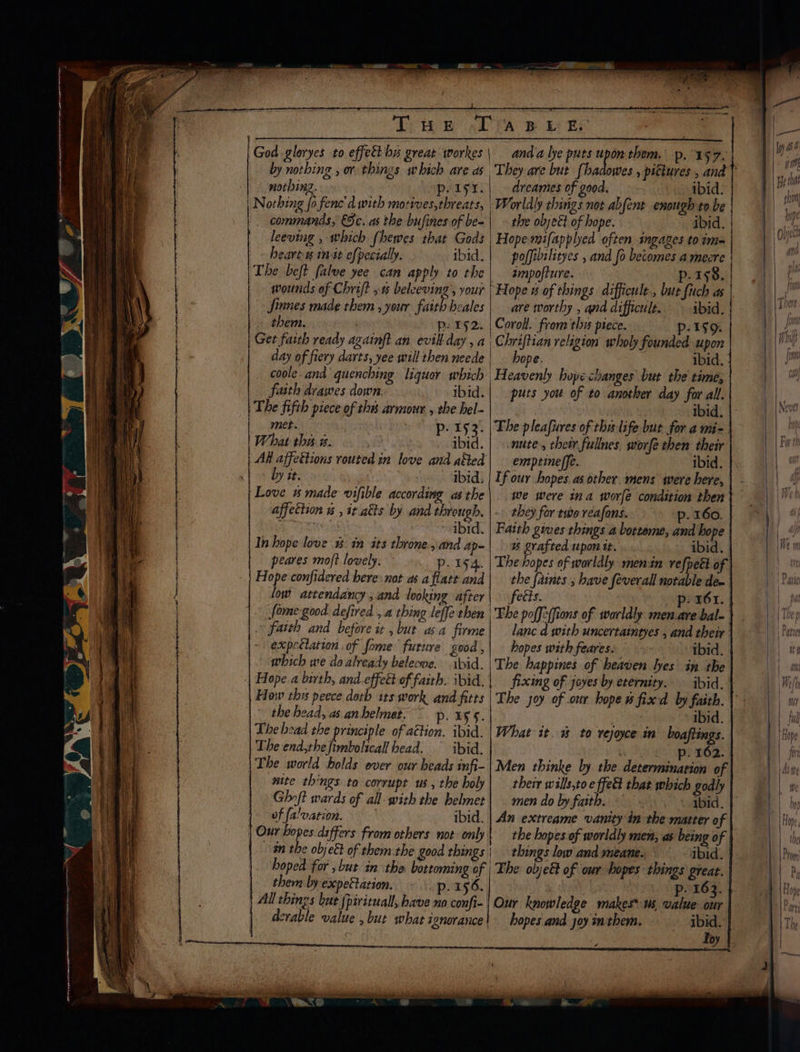 THE TABLE.
God gloryes to effect his great workes
by nothing, or things which are as
nothing. p. 151.
Nothing so fenc'd with motives, threats,
commands, &c. as the busines of be-
leeving, which shewes that Gods
heart is in it especially. ibid.
The best salve yee can apply to the
wounds of Christ, is beleeving, your
sinnes made them, your faith heales
them. p. 152.
Get faith ready against an evill day, a
day of fiery darts, yee will then neede
coole and quenching liquor which
faith drawes down. ibid.
The fifth piece of this armour, the hel-
met. p. 153.
What this is. ibid.
All affections routed in love and acted
by it. ibid.
Love is made visible according as the
affection is, it acts by and through.
ibid.
In hope love is in its throne, and ap-
peares most lovely. p. 154.
Hope considered here not as a flatt and
low attendancy, and looking after
some good desired, a thing lesse then
faith and before it, but as a firme
expectation of some future good,
which we do already beleeve. ibid.
Hope a birth, and effect of faith. ibid.
How this peece doth its work and fitts
the head, as an helmet. p. 155.
The head the principle of action. ibid.
The end, the simbolicall head. ibid.
The world holds over our heads infi-
nite things to corrupt us, the holy
Ghost wards of all with the helmet
of salvation. ibid.
Our hopes differs from others not only
in the object of them the good things
hoped for, but in the bottoming of
them by expectation. p. 156.
All things but spirituall, have no consi-
derable value, but what ignorance
and a lye puts upon them. p. 157.
They are but shadowes, pictures, and
dreames of good. ibid.
Worldly things not absent enough to be
the object of hope. ibid.
Hope misapplyed often ingages to im-
possibilityes, and so becomes a meere
imposture. p. 158.
Hope is of things difficult, but such as
are worthy, and difficult. ibid.
Coroll. from this piece. p. 159.
Christian religion wholy founded upon
hope. ibid.
Heavenly hope changes but the time,
puts you of to another day for all.
ibid.
The pleasures of this life but for a mi-
nute, their fullnes worse then their
emptinesse. ibid.
If our hopes as other mens were here,
we were in a worse condition then
they for two reasons. p. 160.
Faith gives things a bottome, and hope
is grafted upon it. ibid.
The hopes of worldly men in respect of
the saints, have severall notable de-
fects. p. 161.
The possessions of worldly men are bal-
lanc'd with uncertaintyes, and their
hopes with feares. ibid.
The happines of heaven lyes in the
fixing of joyes by eternity. ibid.
The joy of our hope is fix'd by faith.
ibid.
What it is to rejoyce in boastings.
p. 162.
Men thinke by the determination of
their wills, to effect that which godly
men do by faith. ibid.
An extreame vanity in the matter of
the hopes of worldly men, as being of
things low and meane. ibid.
The object of our hopes things great.
p. 163.
Our knowledge makes us value our
hopes and joy in them. ibid.
Joy